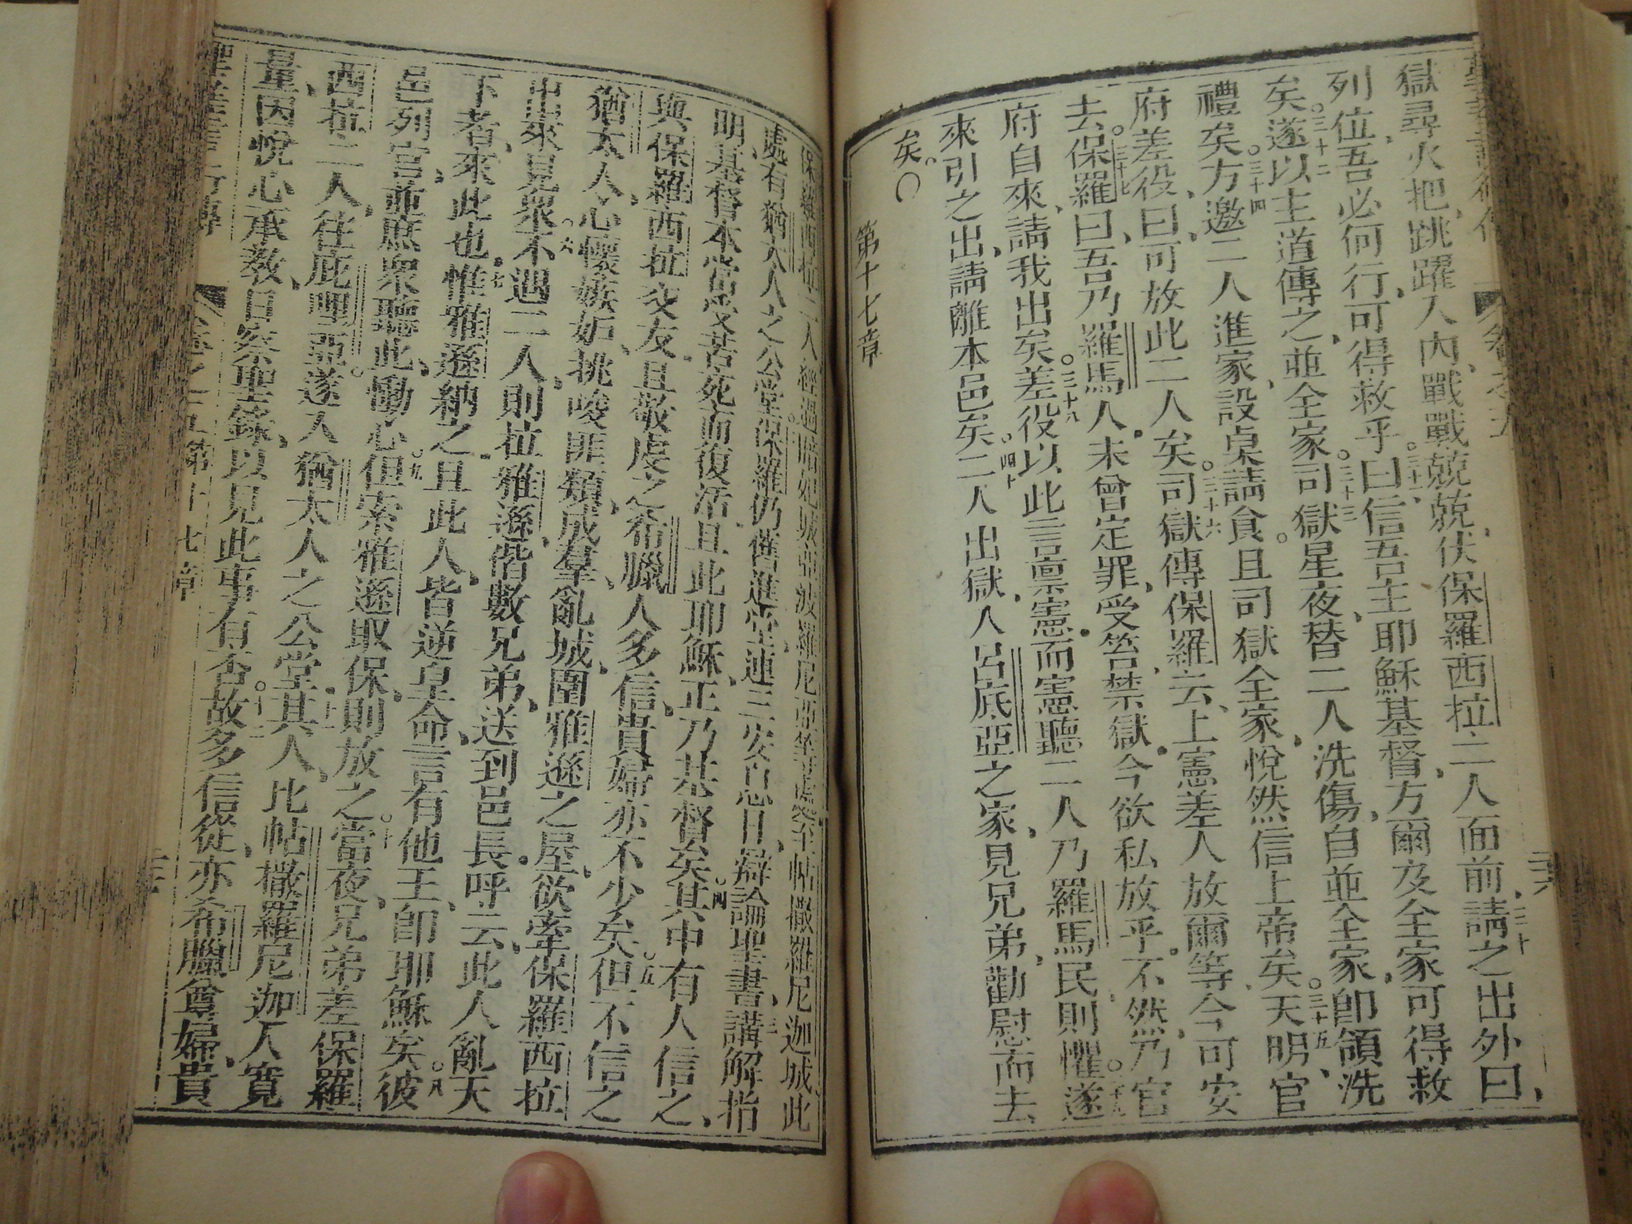 獄尋火把、跳躍入內、戰戰兢兢、伏保羅西拉二人面前、三十請之出外曰、
列位、吾必何行、可得救乎。三十一曰、信吾主耶穌基督、方爾及全家可得救
矣。三十二遂以主道傳之、並全家。三十三司獄星夜替二人洗傷、自並全家、卽領洗
禮矣。三十四方邀二人進家、設桌請食、且司獄全家、悅然信上帝矣。三十五天明、官
府差役曰、可放此二人矣。三十六司獄傳保羅云、上憲差人放爾等、今可安
去。三十七保羅曰、吾乃羅馬人、未曾定罪、受笞禁獄、今欲私放乎。不然、乃官
府自來、請我出矣。三十八差役以此言稟憲、而憲聽二人乃羅馬民、則懼、遂
來引之出、請離本邑矣。四十二人出獄、入呂底亞之家、見兄弟、勸慰而去
矣。〇
第十七章
保羅西拉二人經過
處有猶太人之公堂。保羅仍舊進堂、連三安息日、辯論聖書、三講解指
明、基督本當受苦死而復活、且此耶穌、正乃基督矣。四其中有人信之、
與保羅西拉交友、且敬虔之希臘人多信、貴婦亦不少矣。五但不信之
猶太人、心懷嫉妒、挑唆匪類、成羣亂城、圍雅遜之屋、欲牽保羅西拉
出來見衆。六不遇二人、則拉雅遜、偕數兄弟、送到邑長、呼云、此人亂天
下者、來此也。七惟雅遜納之、且此人皆逆皇命、言有他王、卽耶穌矣。八彼
邑列官、並庶衆聽此、慟心。九但索雅遜取保、則放之。十當夜、兄弟差保羅
西拉二人、往庇哩亞、遂入猶太人之公堂。十一其人比帖撒羅尼迦人寬
量、因悅心承教、日察聖錄、以見此事有否。十二故多信從、亦希臘尊婦、貴